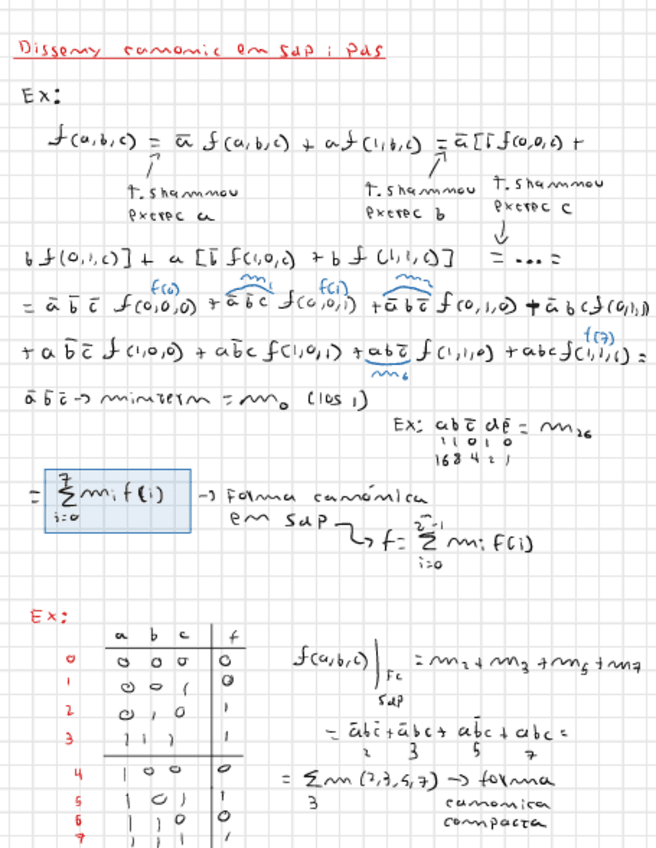 Disseny canonic em SdP i PdS
Ex:
f(a,b,c) = a̅ f(a,b,c) + a f(1,b,c) = a̅ [b̅ f(0,0,c) +
t. shannon
respecte a
t. shannon
respecte b
t. shannon
respecte c
b f(0,1,c)] + a [b̅ f(1,0,c) + b f(1,1,c)] = ... =
f(0) m₁ f(1) m₂
= a̅ b̅ c̅ f(0,0,0) + a̅ b̅ c f(0,0,1) + a̅ b c̅ f(0,1,0) + a̅ b c f(0,1,1)
f(7)
+ a b̅ c̅ f(1,0,0) + a b̅ c f(1,0,1) + a b c̅ f(1,1,0) + a b c f(1,1,1) =
m₆
a̅ b̅ c̅ → minterm = m₀ (los 1)
Ex: a b c̅ d e̅ = m₂₆
1 1 0 1 0
16 8 4 2 1
= 7 Σ i=0 mᵢ f(i) → Forma canónica
em SdP
f = 2ⁿ-1 Σ i=0 mᵢ f(i)
Ex:
a b c f
0 0 0 0 0
1 0 0 1 0
2 0 1 0 1
3 1 1 1 1
4 1 0 0 0
5 1 0 1 1
6 1 1 0 0
7 1 1 1 1
f(a,b,c) | Fc SdP = m₂ + m₃ + m₅ + m₇
= a̅ b c̅ + a̅ b c + a b̅ c + a b c =
2 3 5 7
= Σ 3 m (2,3,5,7) → forma
canonica
compacta